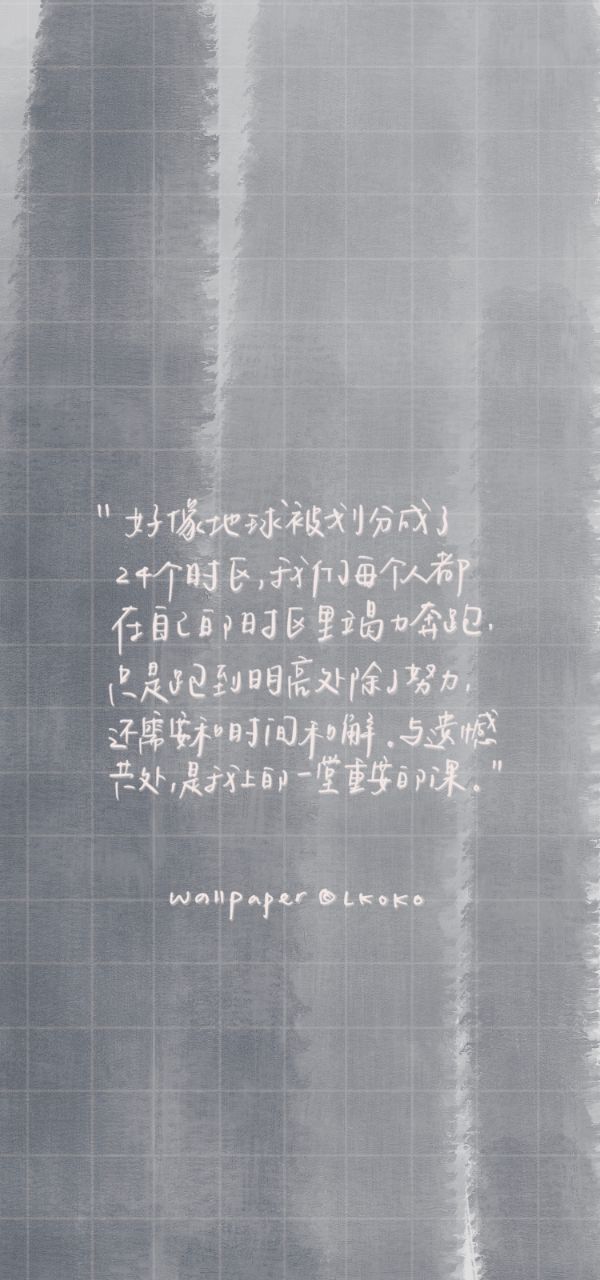 "好像地球被划分成了
24个时区,我们每个人都
在自己的时区里竭力奔跑.
只是跑到明亮处除了努力,
还需要和时间和解.与遗憾
共处,是我上的一堂重要的课."
wallpaper @LKOKO